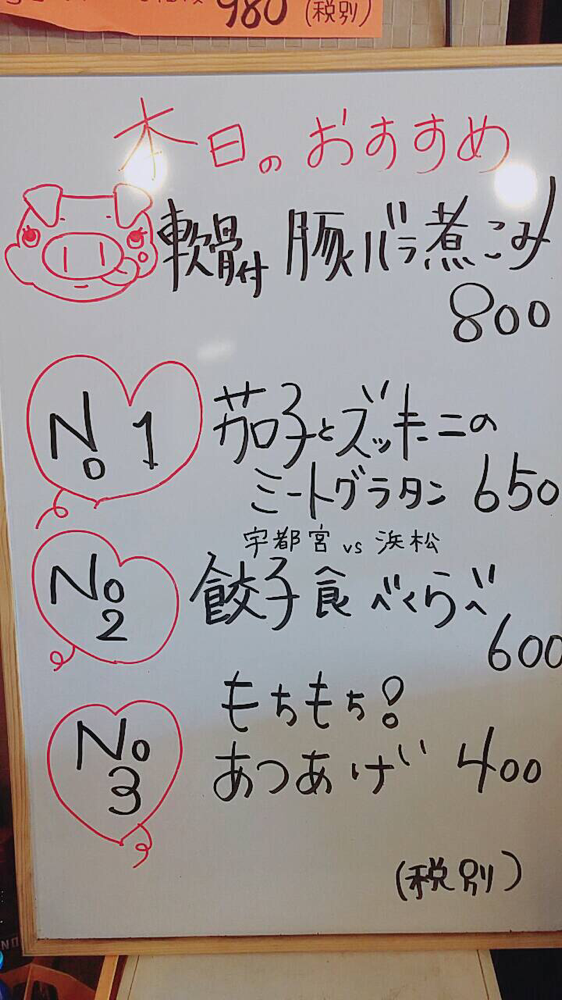 980 (税別)
本日のおすすめ
軟骨付 豚バラ煮こみ
800
No 1 茄子とズッキーニの
ミートグラタン 650
宇都宮 vs 浜松
No 2 餃子食べくらべ
600
もちもち!
No 3 あつあげ 400
(税別)